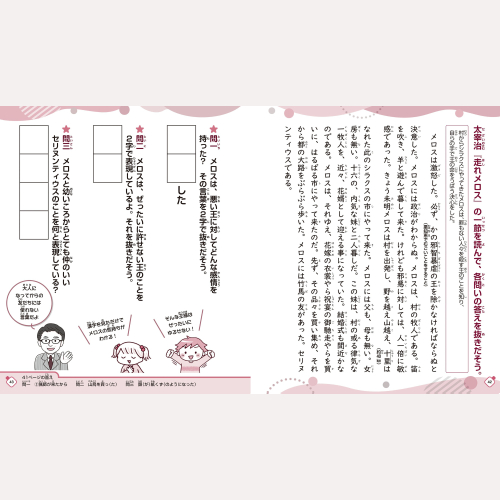 太宰治『走れメロス』の一節を読んで、各問いの答えを抜きだそう。
村からシラクスにやってきたメロスは、罪もない人々を殺す王のことを知り、
メロスは激怒した。必ず、かの邪智暴虐の王を除かなければならぬと
決意した。メロスには政治がわからぬ。メロスは、村の牧人である。笛
を吹き、羊と遊んで暮して来た。けれども邪悪に対しては、人一倍に敏
感であった。きょう未明メロスは村を出発し、野を越え山越え、十里は
なれた此のシラクスの市にやって来た。メロスには父も、母も無い。女
房も無い。十六の、内気な妹と二人暮しだ。この妹は、村の或る律気な
一牧人を、近々、花婿として迎える事になっていた。結婚式も間近かな
のである。メロスは、それゆえ、花嫁の衣裳やら祝宴の御馳走やらを買
いに、はるばる市にやって来たのだ。先ず、その品々を買い集め、それ
から都の大路をぶらぶら歩いた。メロスには竹馬の友があった。セリヌ
ンティウスである。
42
★問一、メロスは、悪い王に対してどんな感情を
持った? その言葉を2字で抜きだそう。
した
★問二、メロスは、ぜったいに許せない王のことを
2字で表現しているよ。それを抜きだそう。
★問三、メロスと幼いころからとても仲のいい
セリヌンティウスのことを何と表現している?
そんな王様は
ぜったいに
ゆるせない!
漢字を見ただけで
メロスの気持ちが
わかる!
大人に
なってからの
友だちには
使わない
言葉だよ
43
41ページの答え